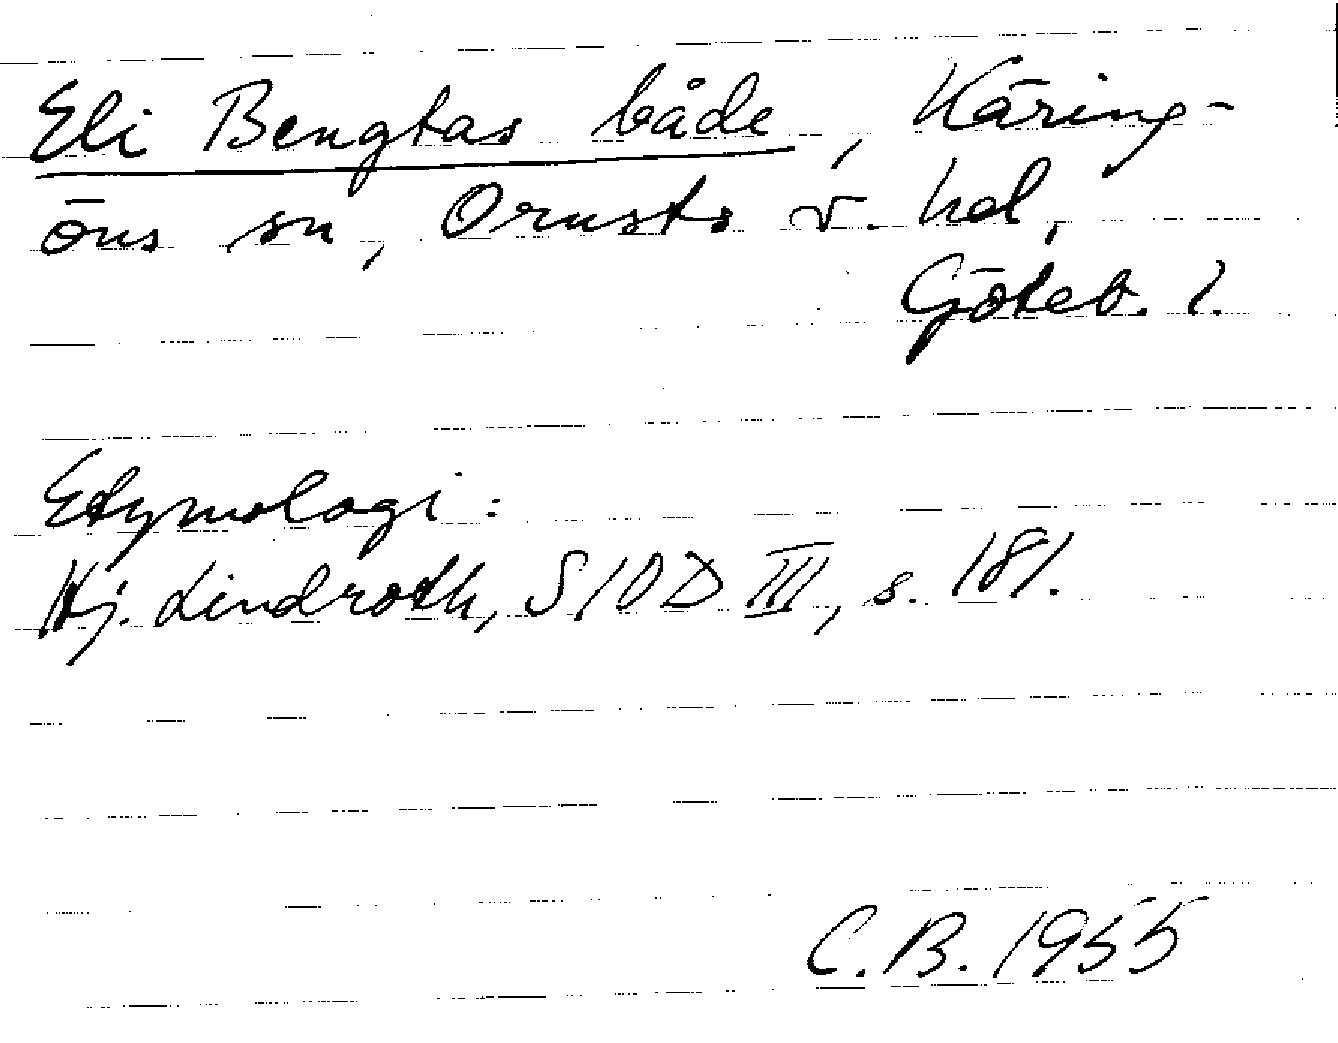 Eli Bengtas både, Käring-
öns sn, Orusts v. hd,
Göteb. l.
Etymologi:
Hj. Lindroth, SIOD III, s. 181.
C.B. 1955